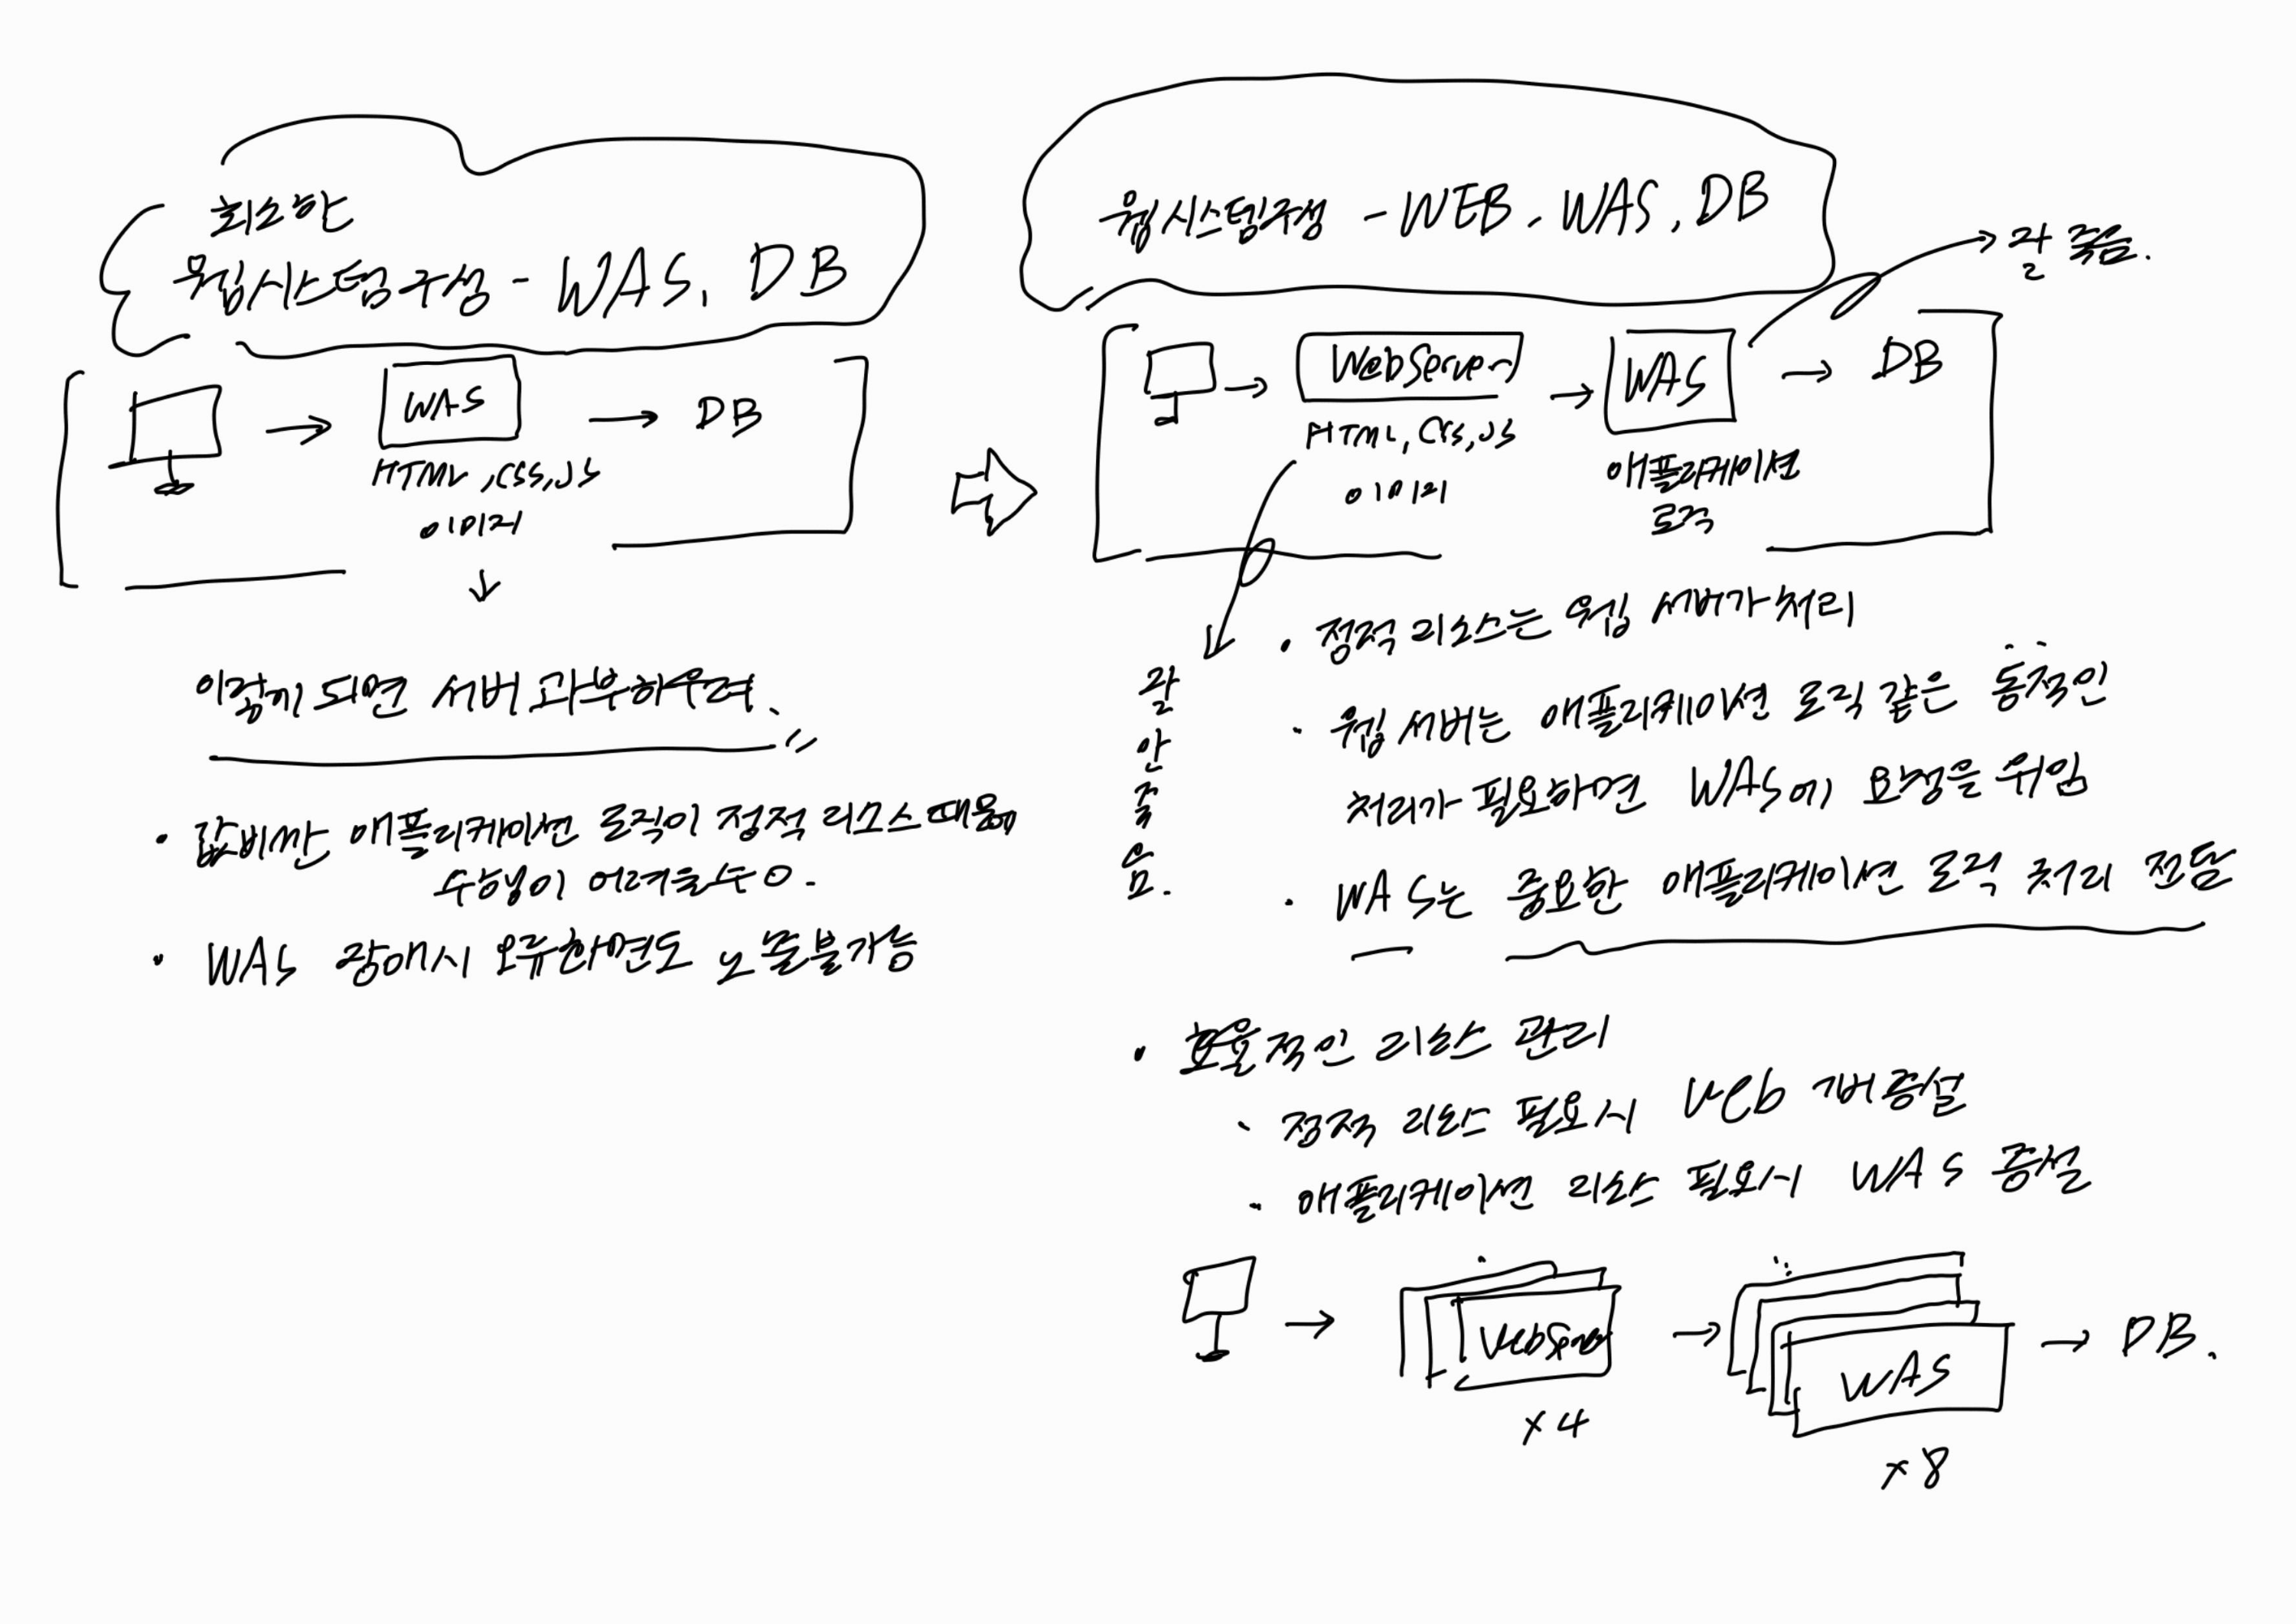 최소한
웹시스템구성 - WAS, DB
WAS
DB
HTML, CSS, JS
이미지
이렇게 되면 서버 과부하우려.
· 값비싼 애플리케이션 로직이 정적 리소스때문에
수행이 어려울수 O.
· WAS 장애시 오류화면도 노출불가능
웹시스템구성 - WEB, WAS, DB
잘 죽음.
WebServer
HTML, CSS, JS
이미지
WAS
애플리케이션
로직
DB
잘안죽음.
· 정적 리소스는 웹 서버가 처리
· 웹 서버는 애플리케이션 로직 같은 동적인
처리가 필요하면 WAS에 요청을 위임
· WAS는 중요한 애플리케이션 로직 처리 전담
· 효율적인 리소스 관리
· 정적 리소스 필요시 Web 서버 증설
· 애플리케이션 리소스 필요시 WAS 증설
WebServer
x4
WAS
x8
DB.